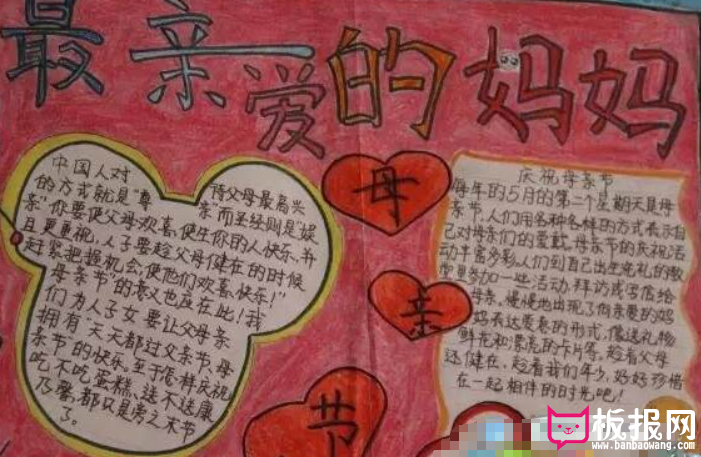 最亲爱的妈妈
中国人对　　待父母最高兴
的方式就是“尊　　亲”而圣经则是“娱
亲”你要使父母欢喜,使生你的人快乐,并
且更重视,人子要趁父母健在的时候
赶紧把握机会,使他们欢喜快乐!”
母亲节的意义也在此!我
们为人子女要让父母亲
拥有天天都过父亲节、母
亲节的快乐.至于怎样庆祝
吃不吃蛋糕、送不送康
乃馨,都只是旁之末节
了。
母
亲
节
庆祝母亲节
每年的5月的第二个星期天是母
亲节.人们用各种各样的方式表示自
己对母亲们的爱戴.母亲节的庆祝活
动丰富多彩人们到自己出生洗礼的教
堂里参加一些活动.拜访或写信给
母亲.慢慢地出现了向亲爱的妈
妈表达爱意的形式,像送礼物
鲜花和漂亮的卡片等,趁着父母
还健在.趁着我们年少,好好珍惜
在一起相伴的时光吧!
板报网
www.banbaowang.com